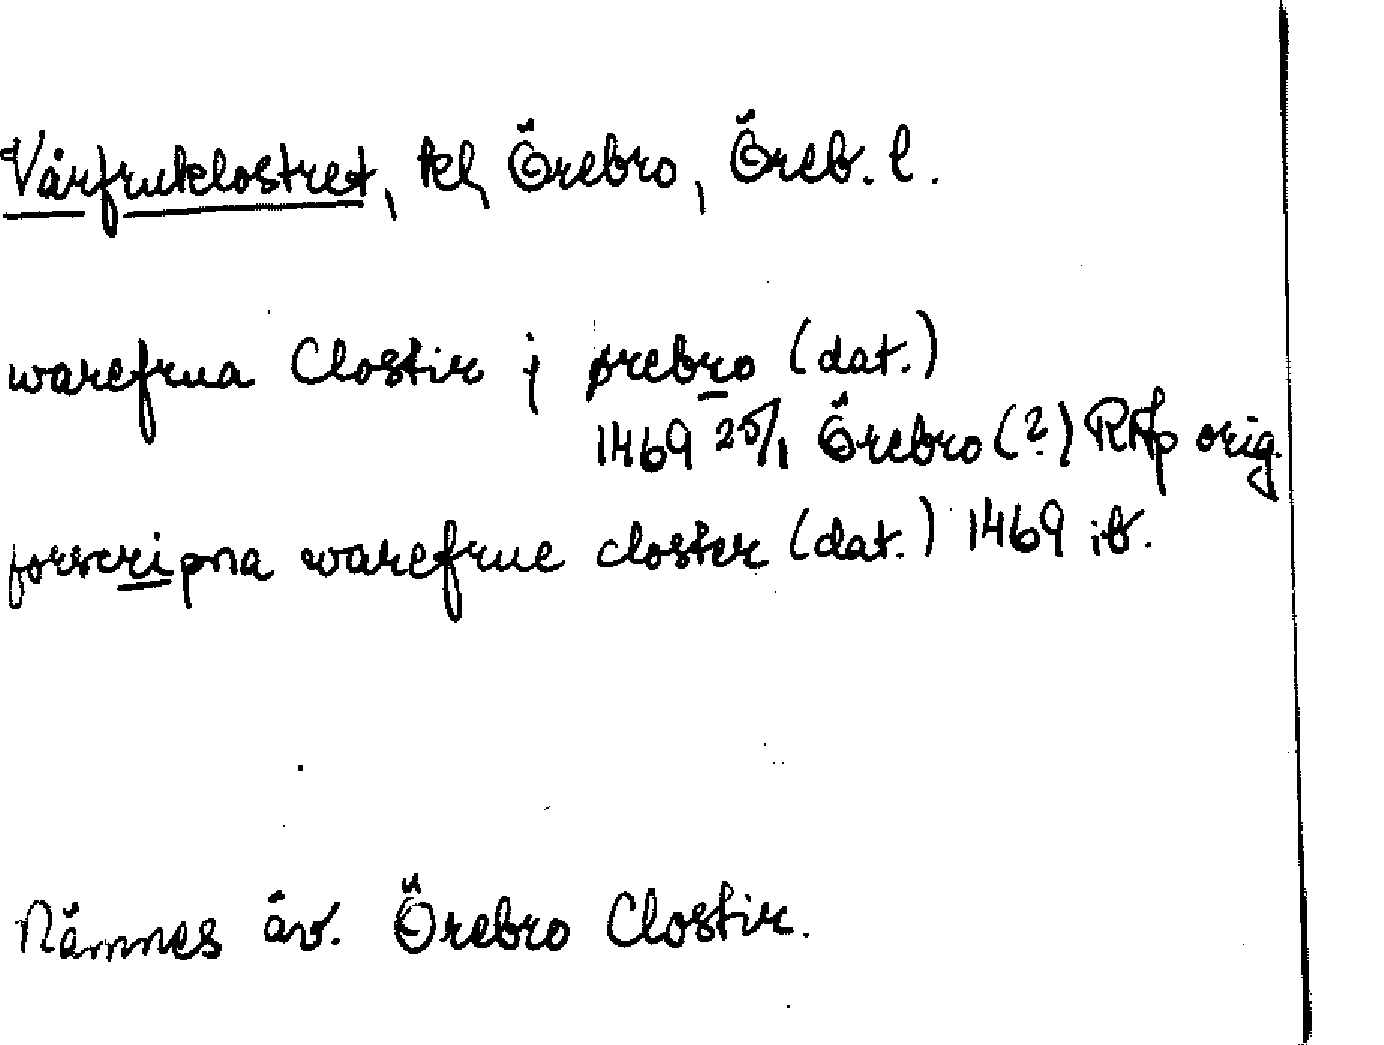 Vårfruklostret, kl, Örebro, Öreb. l.
warefrua Clostir j ørebro (dat.)
1469 25/1 Örebro (?) RAp orig.
forscripna warefrue closter (dat.) 1469 ib.
Nämnes äv. Örebro Clostir.